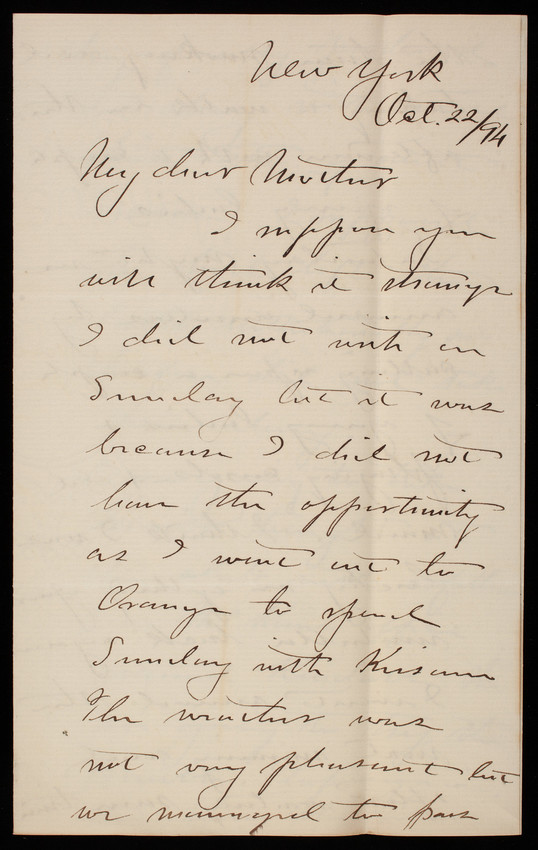 New York
Oct. 22/94
My dear Mother
I suppose you
will think it strange
I did not write on
Sunday but it was
because I did not
have the opportunity
as I went out to
Orange to spend
Sunday with
The weather was
not very pleasant but
we managed to pass